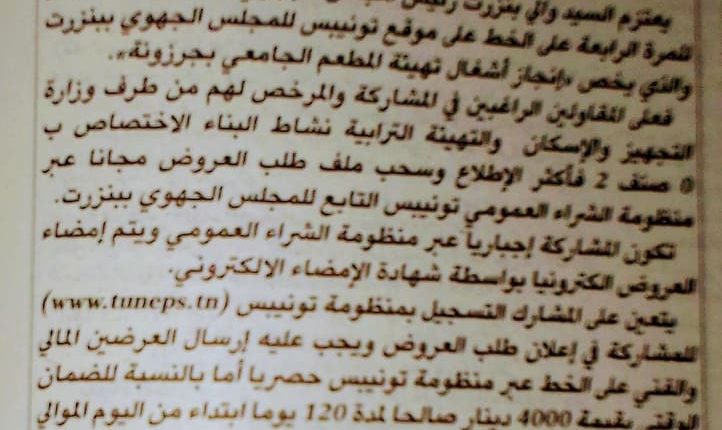 يعتزم السيد والي بنزرت رئيس
للمرة الرابعة على الخط على موقع تونيبس للمجلس الجهوي ببنزرت
والذي يخص «إنجاز أشغال تهيئة المطعم الجامعي بجرزونة».
فعلى المقاولين الراغبين في المشاركة والمرخص لهم من طرف وزارة
التجهيز والإسكان والتهيئة الترابية نشاط البناء الاختصاص ب
0 صنف 2 فأكثر الإطلاع وسحب ملف طلب العروض مجانا عبر
منظومة الشراء العمومي تونيبس التابع للمجلس الجهوي ببنزرت.
تكون المشاركة إجبارياً عبر منظومة الشراء العمومي ويتم إمضاء
العروض الكترونيا بواسطة شهادة الإمضاء الالكتروني.
يتعين على المشارك التسجيل بمنظومة تونيبس (www.tuneps.tn)
للمشاركة في إعلان طلب العروض ويجب عليه إرسال العرضين المالي
والفني على الخط عبر منظومة تونيبس حصريا أما بالنسبة للضمان
الوقتي بقيمة 4000 دينار صالحا لمدة 120 يوما ابتداء من اليوم الموالي